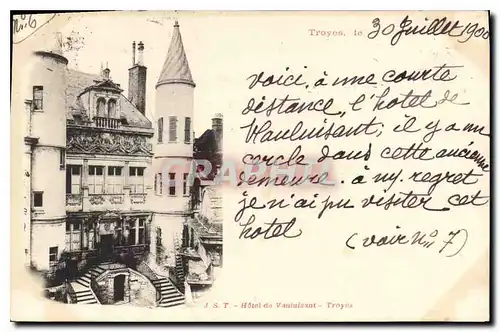 No 6
Troyes, le 30 Juillet 1900
voici, à une courte
distance, l'hotel de
Vauluisant; il y a un
cercle dans cette ancienne
demeure. à my regret
je n'ai pu visiter cet
hotel.
(voir No 7)
J. S. T. - Hôtel de Vauluisant - Troyes